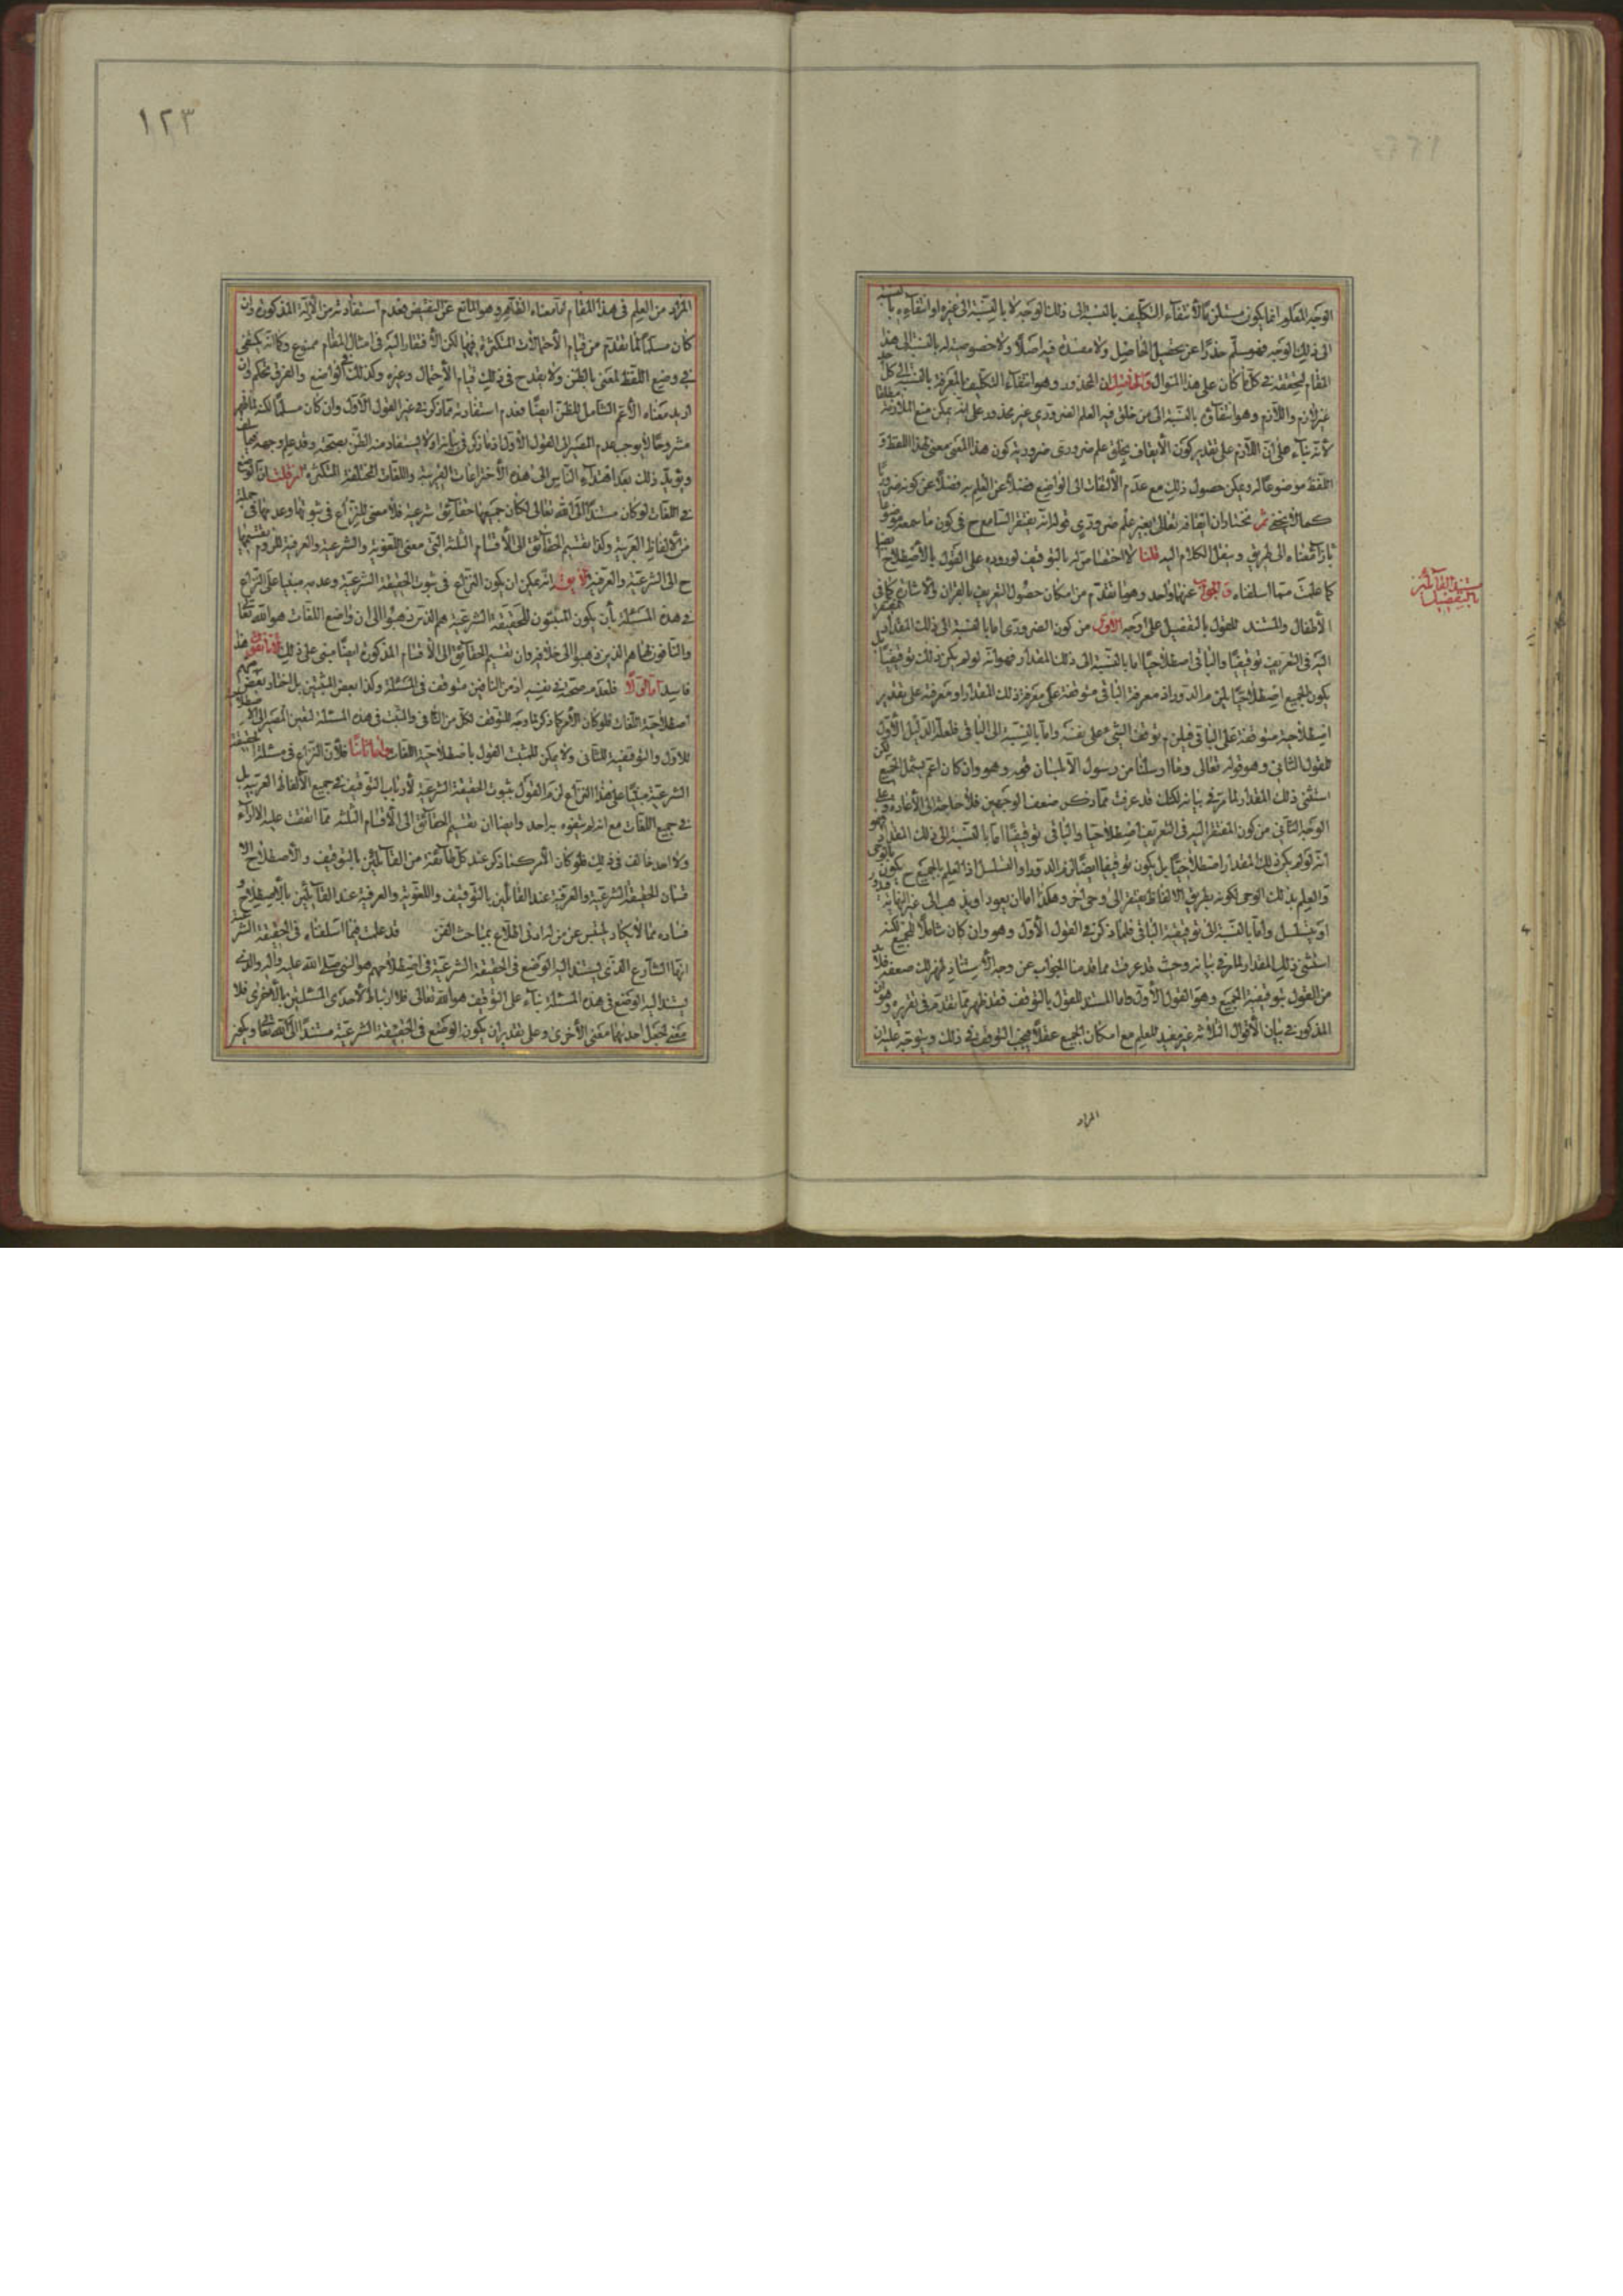 الوجه المعلوم انما يكون مستلزما لانتفاء التكليف بالنسبة الى ذلك الوجه لا بالنسبة الى غيره او انتفاؤه بالنسبة
الى ذلك الوجه فهو مسلم حذرا عن تحصيل الحاصل ولا مفسدة فيه اصلا ولا خصوصية له بالنسبة الى هذا
المقام لتحققه في كل ما كان على هذا المنوال وان المحذور وهو انتفاء التكليف بالمعرفة بالنسبة الى كل
غير لازم واللازم وهو انتفاؤه بالنسبة الى من خلق فيه العلم الضروري غير محذور على انه يمكن منع الملازمة
لانه بناء على ان اللازم على تقدير كون الايقاف بخلق علم ضروري ضرورية كون هذا المعنى معنى لهذا اللفظ و
اللفظ موضوعا له ويمكن حصول ذلك مع عدم الالتفات الى الواضع فضلا عن العلم به فضلا عن كونه ضروريا
كما لا يخفى ثم نختار ان ايقافه تعالى بغير علم ضروري قوله انه يفتقر السامع ح في كون ما سمعه موضوعا
بازاء معناه الى طريق وينقل الكلام اليه قلنا لا اختصاص له بالتوقيف لوروده على القول بالاصطلاح ايضا
كما علمت مما اسلفناه والجواب عنهما واحد وهو ما تقدم من امكان حصول التعريف بالقران والاشارة كما في
الاطفال والمستند للقول بالتفصيل على وجه الاول من كون الضروري اما بالنسبة الى ذلك المقدار المفتقر
اليه في التعريف توقيفيا والباقي اصطلاحيا اما بالنسبة الى ذلك المقدار فهو انه لو لم يكن ذلك توقيفيا بل
يكون الجميع اصطلاحيا يلزم الدور اذ معرفة الباقي متوقفة على معرفة ذلك المقدار ومعرفته على تقدير
اصطلاحية متوقفة على الباقي فيلزم توقف الشيء على نفسه واما بالنسبة الى الباقي فلعله الدليل الاول
للقول الثاني وهو قوله تعالى وما ارسلنا من رسول الا بلسان قومه وهو وان كان اعم يشمل الجميع لكن
استثنى ذلك المقدار لما مر في بيانه لكنك قد عرفت مما ذكر ضعف الوجهين فلا حاجة الى الاعادة وعلى
الوجه الثاني من كون المفتقر اليه في التعريف اصطلاحيا والباقي توقيفيا اما بالنسبة الى ذلك المقدار فهو
انه لو لم يكن ذلك المقدار اصطلاحيا بل يكون توقيفيا ايضا لزم الدور او التسلسل اذ العلم بالجميع ح يكون بالوحي
والعلم بذلك الوحي لكونه بطريق الالفاظ يفتقر الى وحي اخر وهكذا اما ان يعود او يذهب الى غير النهاية فيدور
او يتسلسل واما بالنسبة الى توقيفية الباقي فلما ذكر في القول الاول وهو وان كان شاملا للجميع لكنه
استثنى ذلك المقدار لما مر في بيانه وحيث قد عرفت مما قدمنا الجواب عن وجه الاستناد ظهر لك ضعفه فلا بد
من القول بتوقيفية الجميع وهو القول الاول واما المستند للقول بالتوقف فقد ظهر مما تقدم في تقريره وهو ان
المذكور في بيان الاقوال الثلاثة غير مفيد للعلم مع امكان الجميع عقلا فيجب التوقف في ذلك ويتوجه عليه ان
المراد
مستند القائلين
بالتفصيل
١٢٣
المراد من العلم في هذا المقام اما معناه الظاهر وهو المانع عن النقيض فعدم استفادته من الادلة المذكورة وان
كان مسلما لما تقدم من قيام الاحتمالات المتكثرة فيها لكن الافتقار اليه في امثال المقام ممنوع وكانه يكتفى
في وضع اللفظ لمعنى بالظن ولا يقدح في ذلك قيام الاحتمال وغيره وكذلك في الواضع والفرق تحكم وان
اريد معناه الاعم الشامل للظن ايضا فعدم استفادته مما ذكر في غير القول الاول وان كان مسلما لكنه لما ظهر
مشروحا لا يوجب عدم المصير الى القول الاول اذ ما ذكر في بيانه اولا يستفاد منه الظن بصحته وقد علم وجهه مما سلف
ويؤيد ذلك بعد اهتداء الناس الى هذه الاختراعات الغريبة واللغات المختلفة المتكثرة فان قلت ان الواضع
في اللغات لو كان مستندا الى الله تعالى لكان جميعها حقائق شرعية فلا معنى للنزاع في ثبوتها وعدمها في جملة
من الالفاظ العربية وكذا تقسيم الحقائق الى الاقسام الثلثة التي معنى اللغوية والشرعية والعرفية للزوم تقسيمها
ح الى الشرعية والعرفية لا يقال انه يمكن ان يكون النزاع في ثبوت الحقيقة الشرعية وعدمه مبنيا على النزاع
في هذه المسئلة بان يكون المثبتون للحقيقة الشرعية هم الذين ذهبوا الى ان واضع اللغات هو الله تعالى
والنافون لها هم الذين ذهبوا الى خلافه وان تقسيم الحقائق الى الاقسام المذكورة ايضا مبني على ذلك لانا نقول هذا
فاسد اما اولا فلعدم صحته في نفسه اذ من النافين متوقف في المسئلة وكذا بعض المثبتين بل اختار بعض منهم
اصطلاحية اللغات فلو كان الامر كما ذكر لما وجه للتوقف لكل من النافي والمثبت في هذه المسئلة لتعين المصير الى الاصطلاحية
للاول والتوقيفية للثاني ولا يمكن للمثبت القول باصطلاحية اللغات واما ثانيا فلان النزاع في مسئلة الحقيقة
الشرعية مبنيا على هذا النزاع لزم القول بثبوت الحقيقة الشرعية لارباب التوقيف في جميع الالفاظ العربية بل
في جميع اللغات مع انه لم يتفوه به احد وايضا ان تقسيم الحقائق الى الاقسام الثلثة مما اتفقت عليه الاراء
ولا احد خالف في ذلك فلو كان الامر كما ذكر عند كل طائفة من القائلين بالتوقيف والاصطلاح الا
قسمان الحقيقة الشرعية والعرفية عند القائلين بالتوقيف واللغوية والعرفية عند القائلين بالاصطلاح و
فساده مما لا يكاد يلتبس عن من له ادنى اطلاع بمباحث الفن قد علمت فيما اسلفناه في الحقيقة الشرعية
انها الشارع الذي يستند اليه الوضع في الحقيقة الشرعية في اصطلاحهم هو النبي صلى الله عليه واله والذي
يستند اليه الوضع في هذه المسئلة بناء على التوقيف هو الله تعالى فلا ارتباط لاحدى المسئلتين بالاخرى فلا
معنى لجعل احدهما مبنى الاخرى وعلى تقدير ان يكون الوضع في الحقيقة الشرعية مستندا الى الله تعالى ويكون